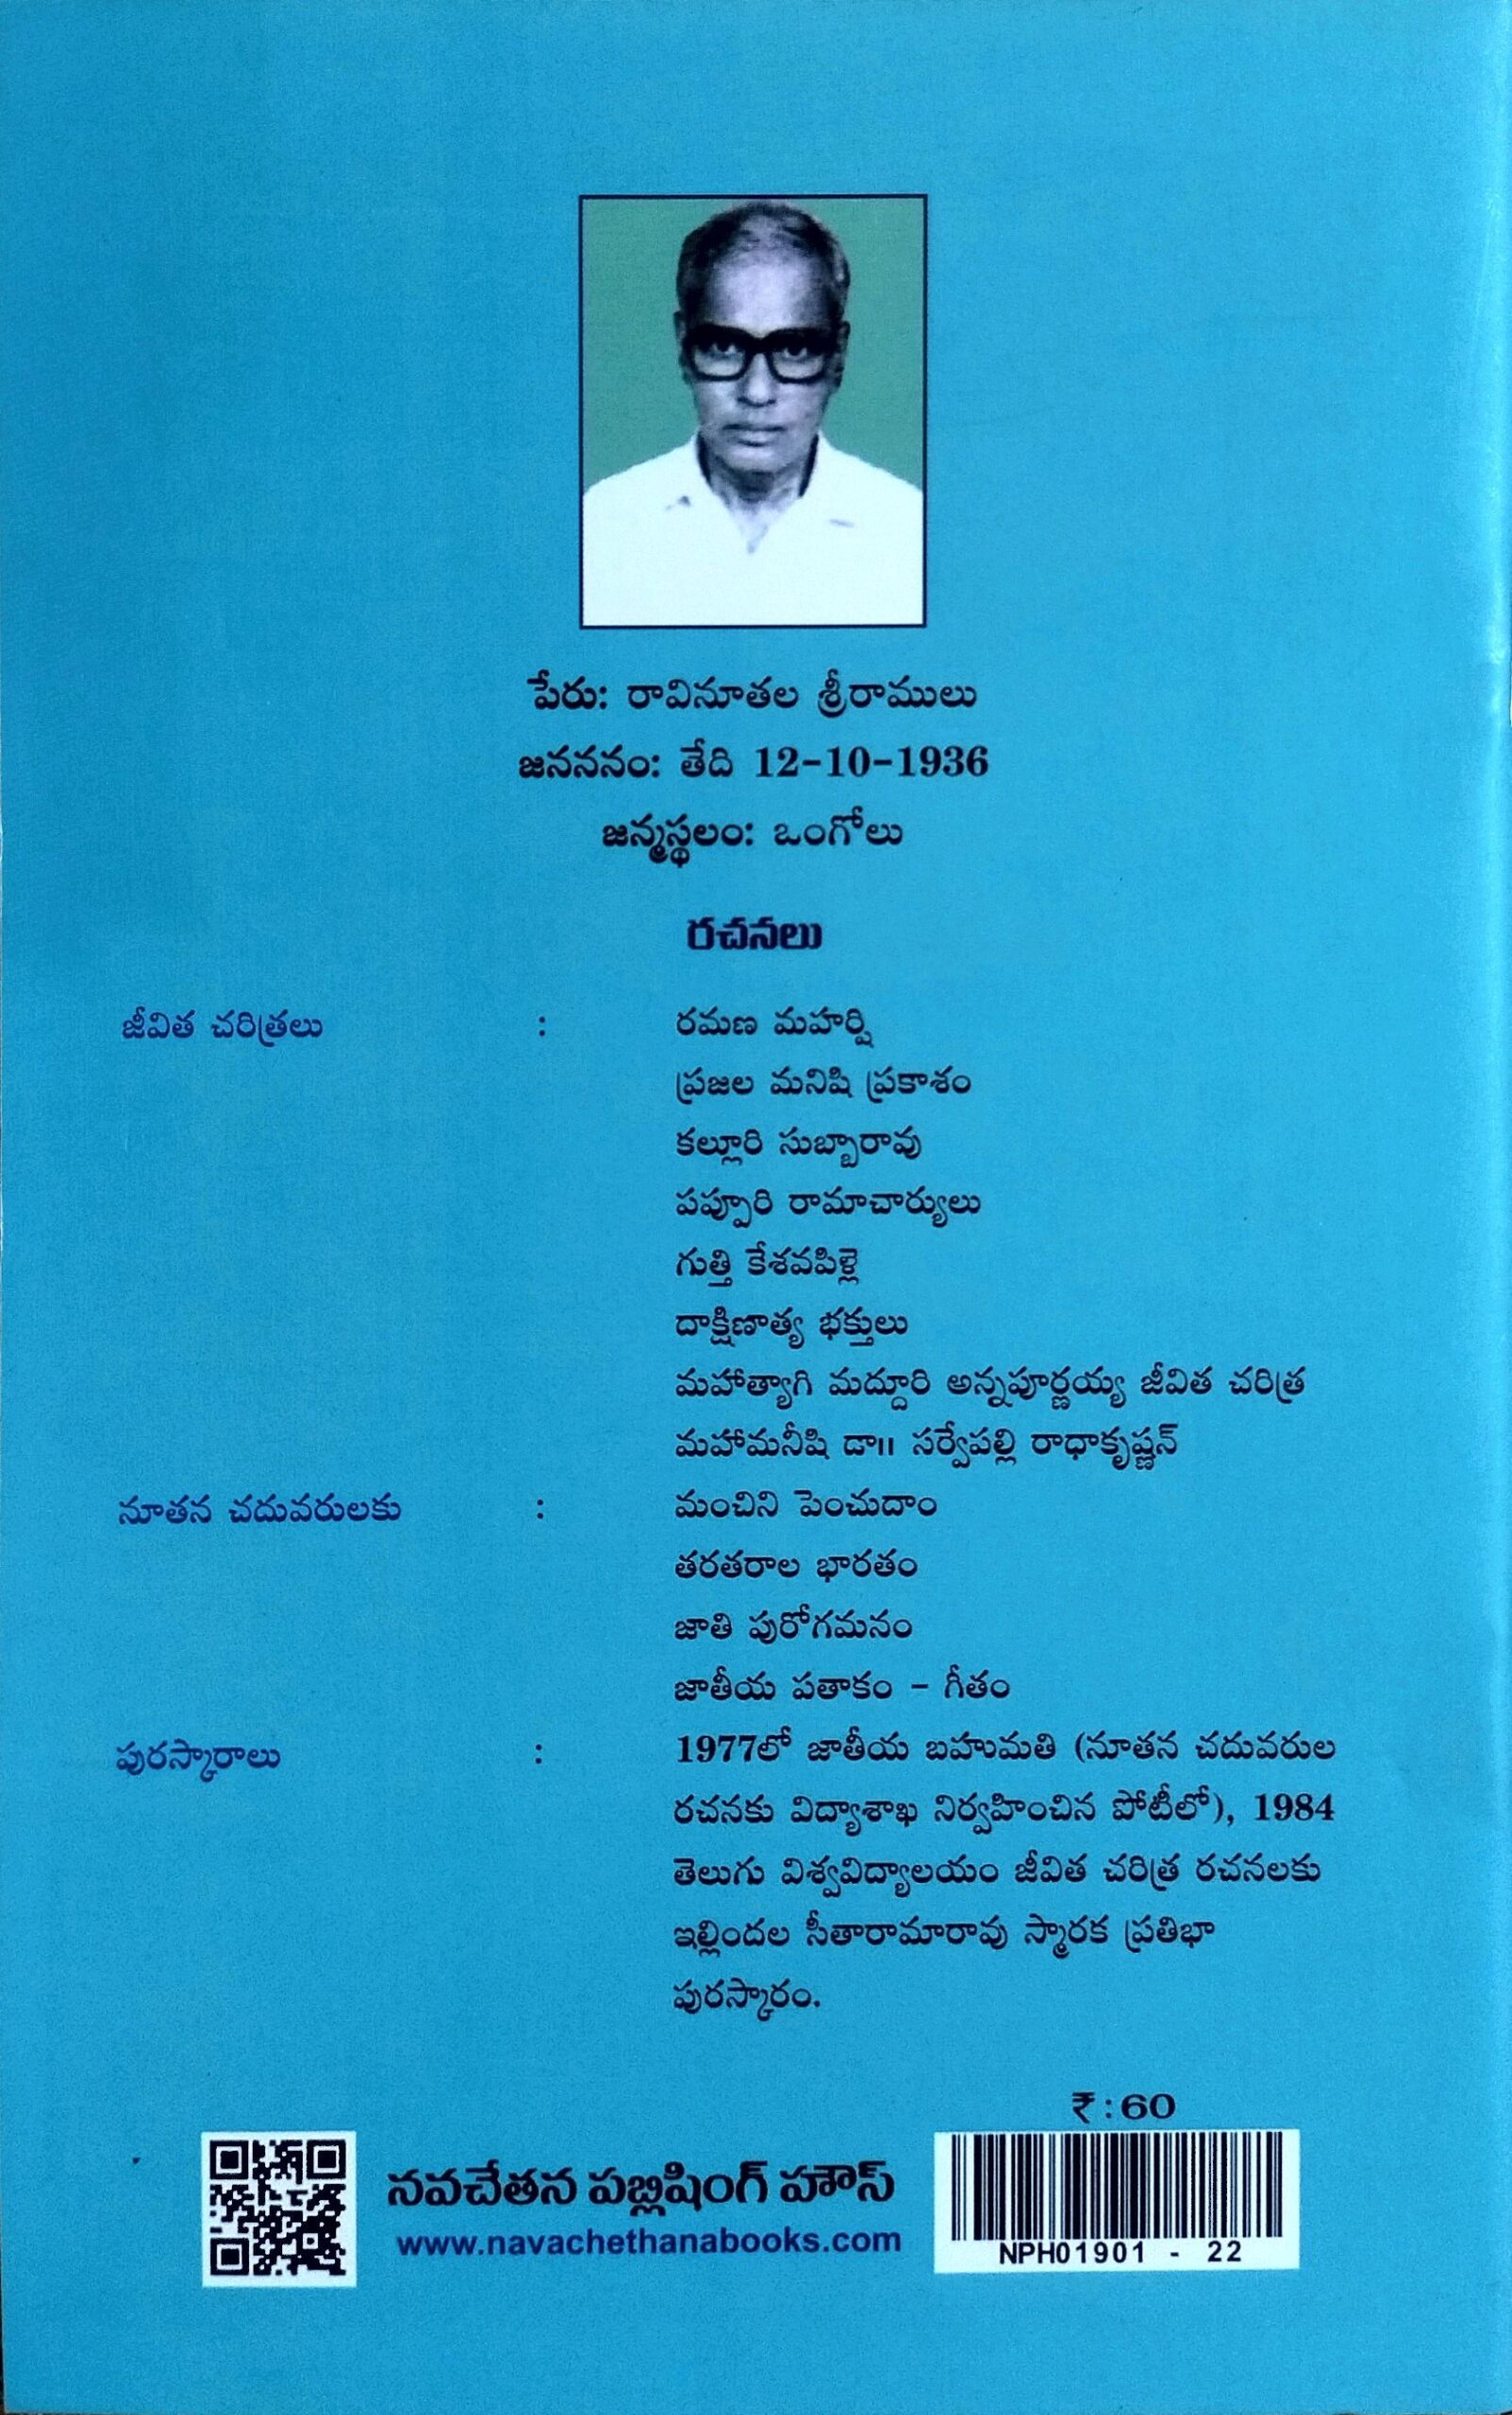 పేరు: రావినూతల శ్రీరాములు
జనననం: తేది 12-10-1936
జన్మస్థలం: ఒంగోలు
రచనలు
జీవిత చరిత్రలు : రమణ మహర్షి
ప్రజల మనిషి ప్రకాశం
కల్లూరి సుబ్బారావు
పప్పూరి రామాచార్యులు
గుత్తి కేశవపిళ్లె
దాక్షిణాత్య భక్తులు
మహాత్యాగి మద్దూరి అన్నపూర్ణయ్య జీవిత చరిత్ర
మహామనీషి డా॥ సర్వేపల్లి రాధాకృష్ణన్
నూతన చదువరులకు : మంచిని పెంచుదాం
తరతరాల భారతం
జాతి పురోగమనం
జాతీయ పతాకం - గీతం
పురస్కారాలు : 1977లో జాతీయ బహుమతి (నూతన చదువరుల
రచనకు విద్యాశాఖ నిర్వహించిన పోటీలో), 1984
తెలుగు విశ్వవిద్యాలయం జీవిత చరిత్ర రచనలకు
ఇల్లిందల సీతారామారావు స్మారక ప్రతిభా
పురస్కారం.
₹:60
నవచేతన పబ్లిషింగ్ హౌస్
www.navachethanabooks.com
NPH01901 - 22